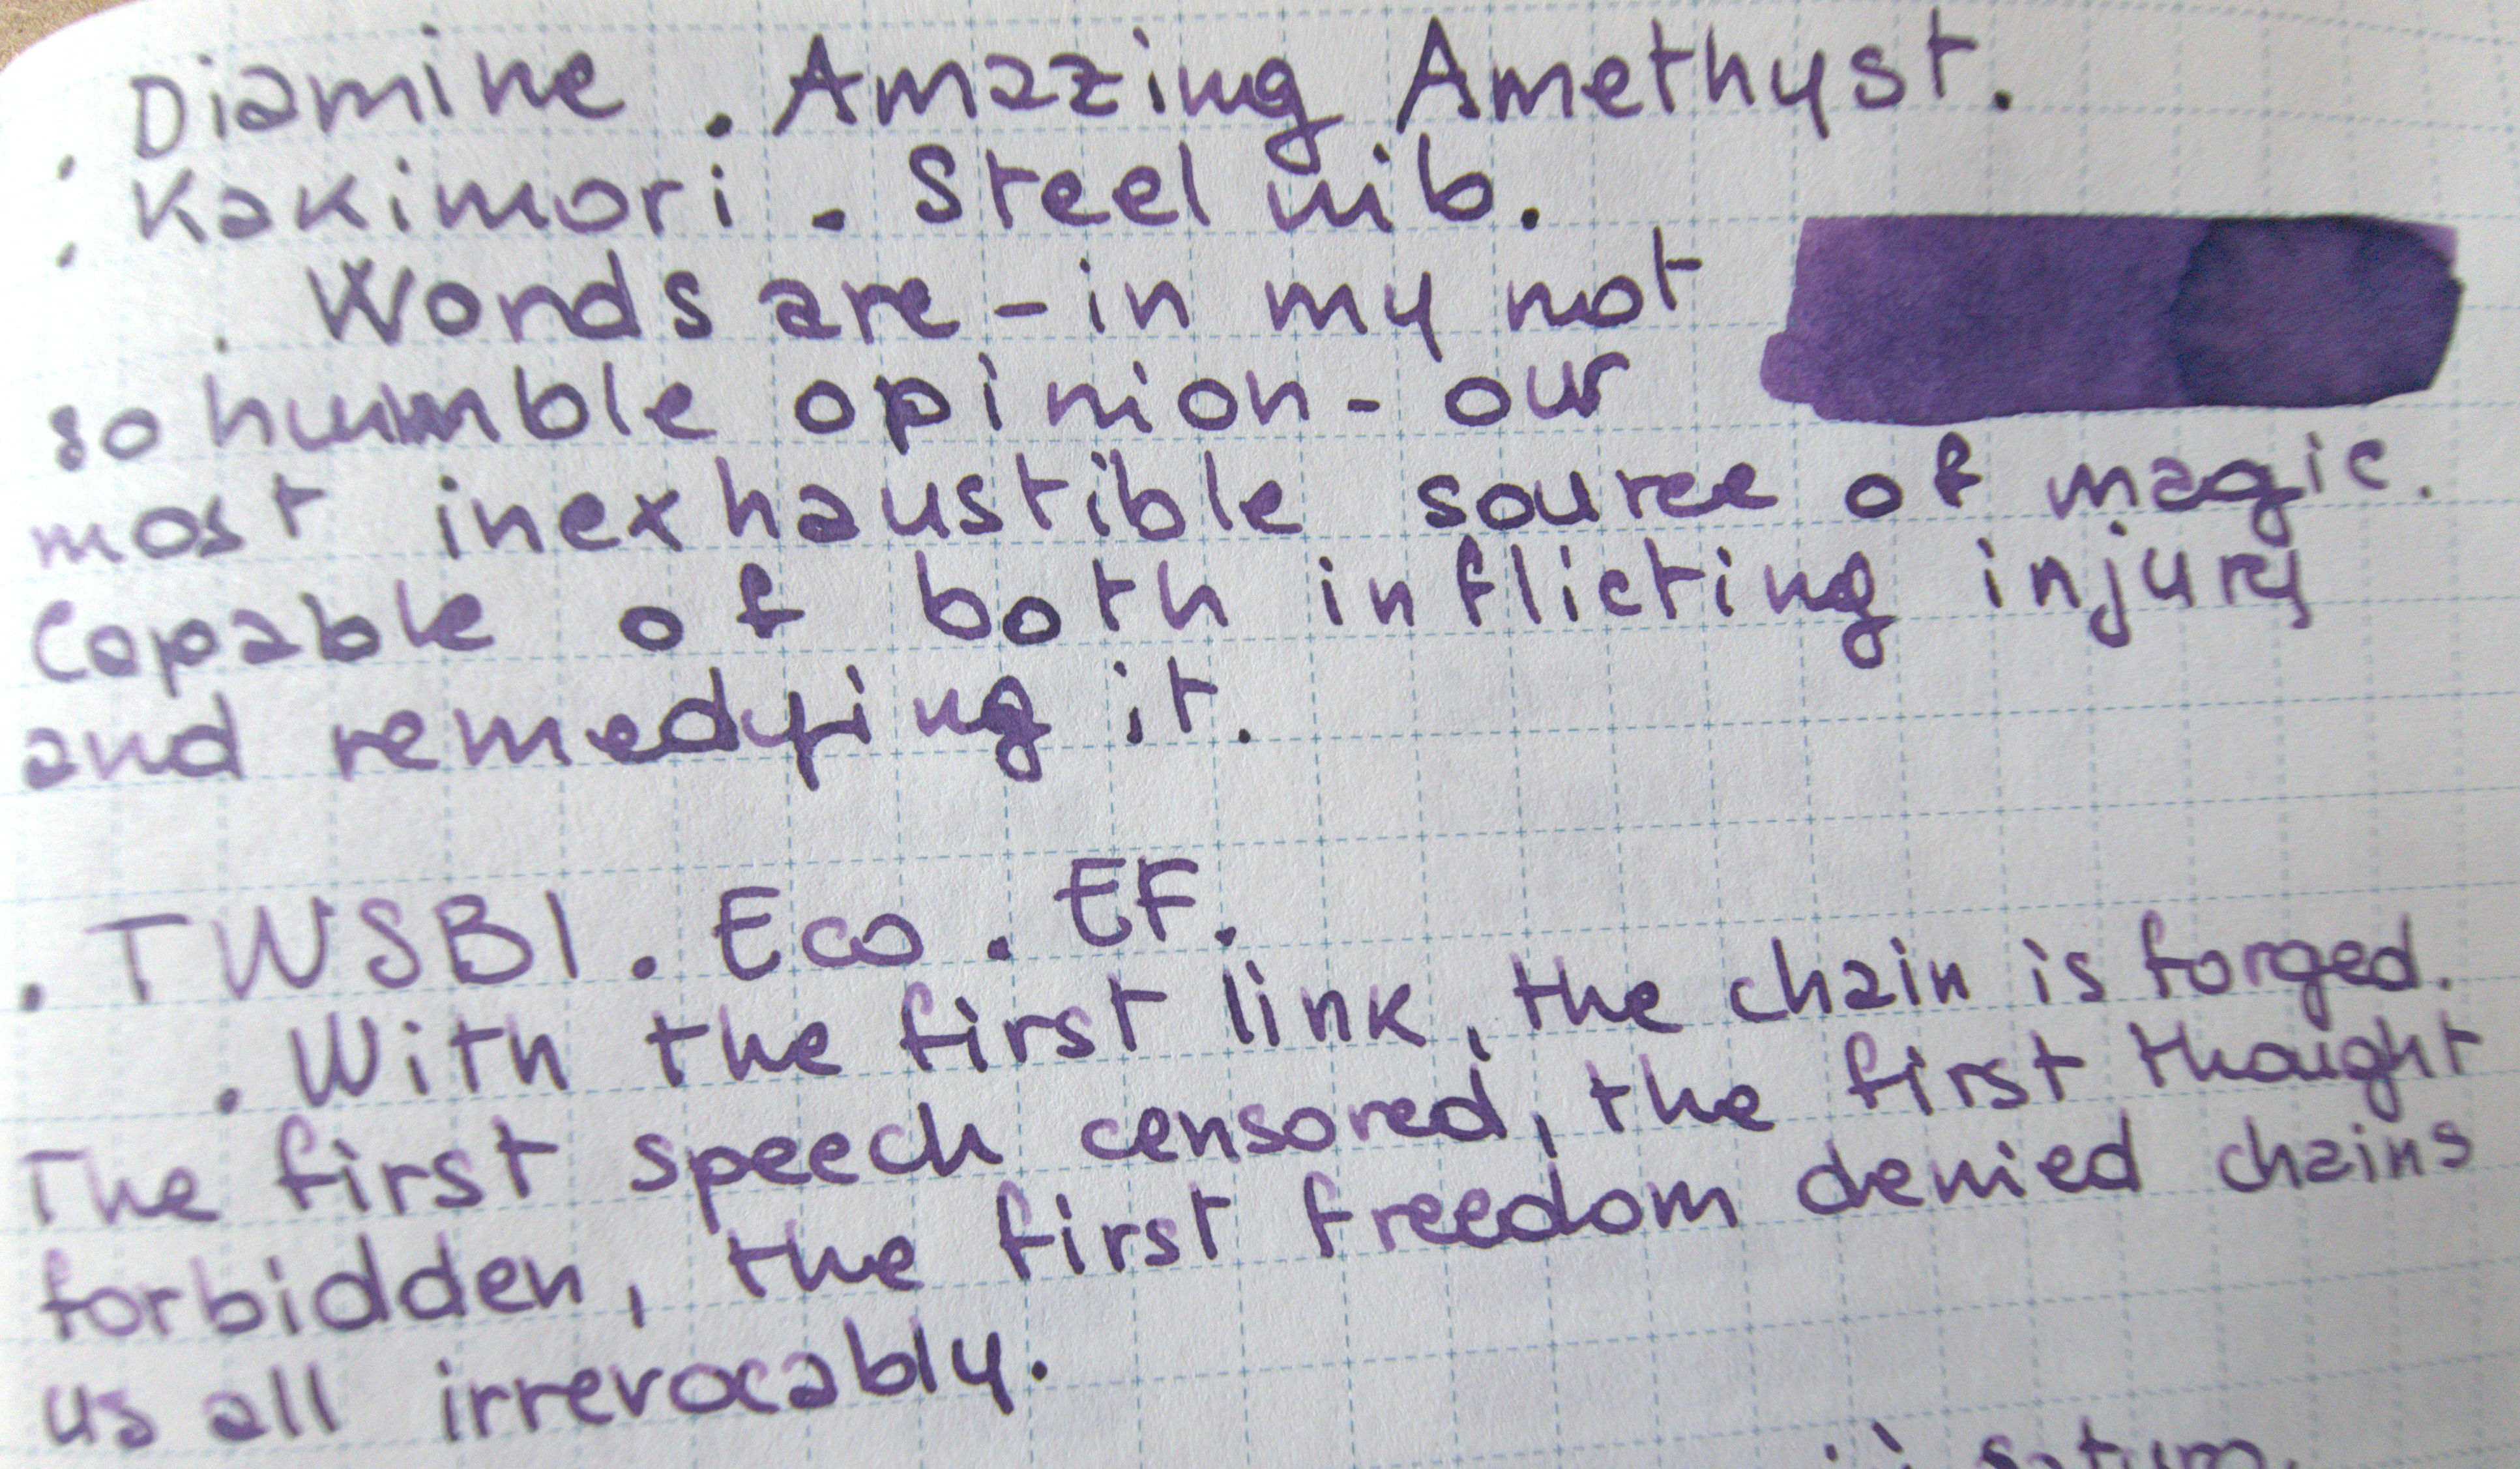 . Diamine . Amazing Amethyst.
. Kakimori . Steel nib.
. Words are - in my not
so humble opinion - our
most inexhaustible source of magic.
Capable of both inflicting injury
and remedying it.
. TWSBI . Eco . EF.
. With the first link, the chain is forged.
The first speech censored, the first thought
forbidden, the first freedom denied chains
us all irrevocably.